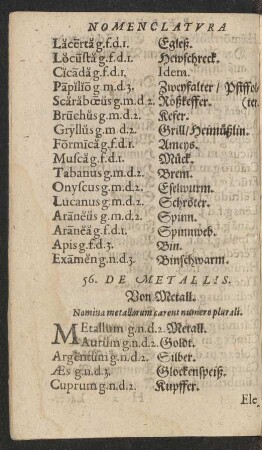 NOMENCLATVRA
Lăcērtă g.f.d.1. Egleß.
Lŏcūstă g.f.d.1. Hewschreck.
Cĭcādă g.f.d.1. Idem.
Pāpĭlĭō g.m.d.3. Zweyfalter / Pfiffol-
Scărăbœŭs g.m.d 2. Roßkeffer. (ter.
Brūchŭs g.m.d.2. Kefer.
Gryllŭs g.m d.2. Grill / Heimüßlin.
Fōrmīcă g.f.d.1. Ameys.
Muscă g.f.d.1. Mück.
Tabanus g.m.d.2. Brem.
Onyscus g.m.d.2. Eselwurm.
Lucanus g.m.d.2. Schröter.
Arānĕŭs g.m.d.2. Spinn.
Arānĕă g.f.d.1. Spinnweb.
Apis g.f.d.3. Bin.
Exāmĕn g.n.d.3. Binschwarm.
56. DE METALLIS.
Von Metall.
Nomina metallorum carent numero plurali.
MEtallum g.n.d.2. Metall.
Aurŭm g.n.d.2. Goldt.
Argentum g.n.d.2. Silber.
Æs g.n.d.3. Glockenspeiß.
Cuprum g.n.d.2. Kupffer.
Ele